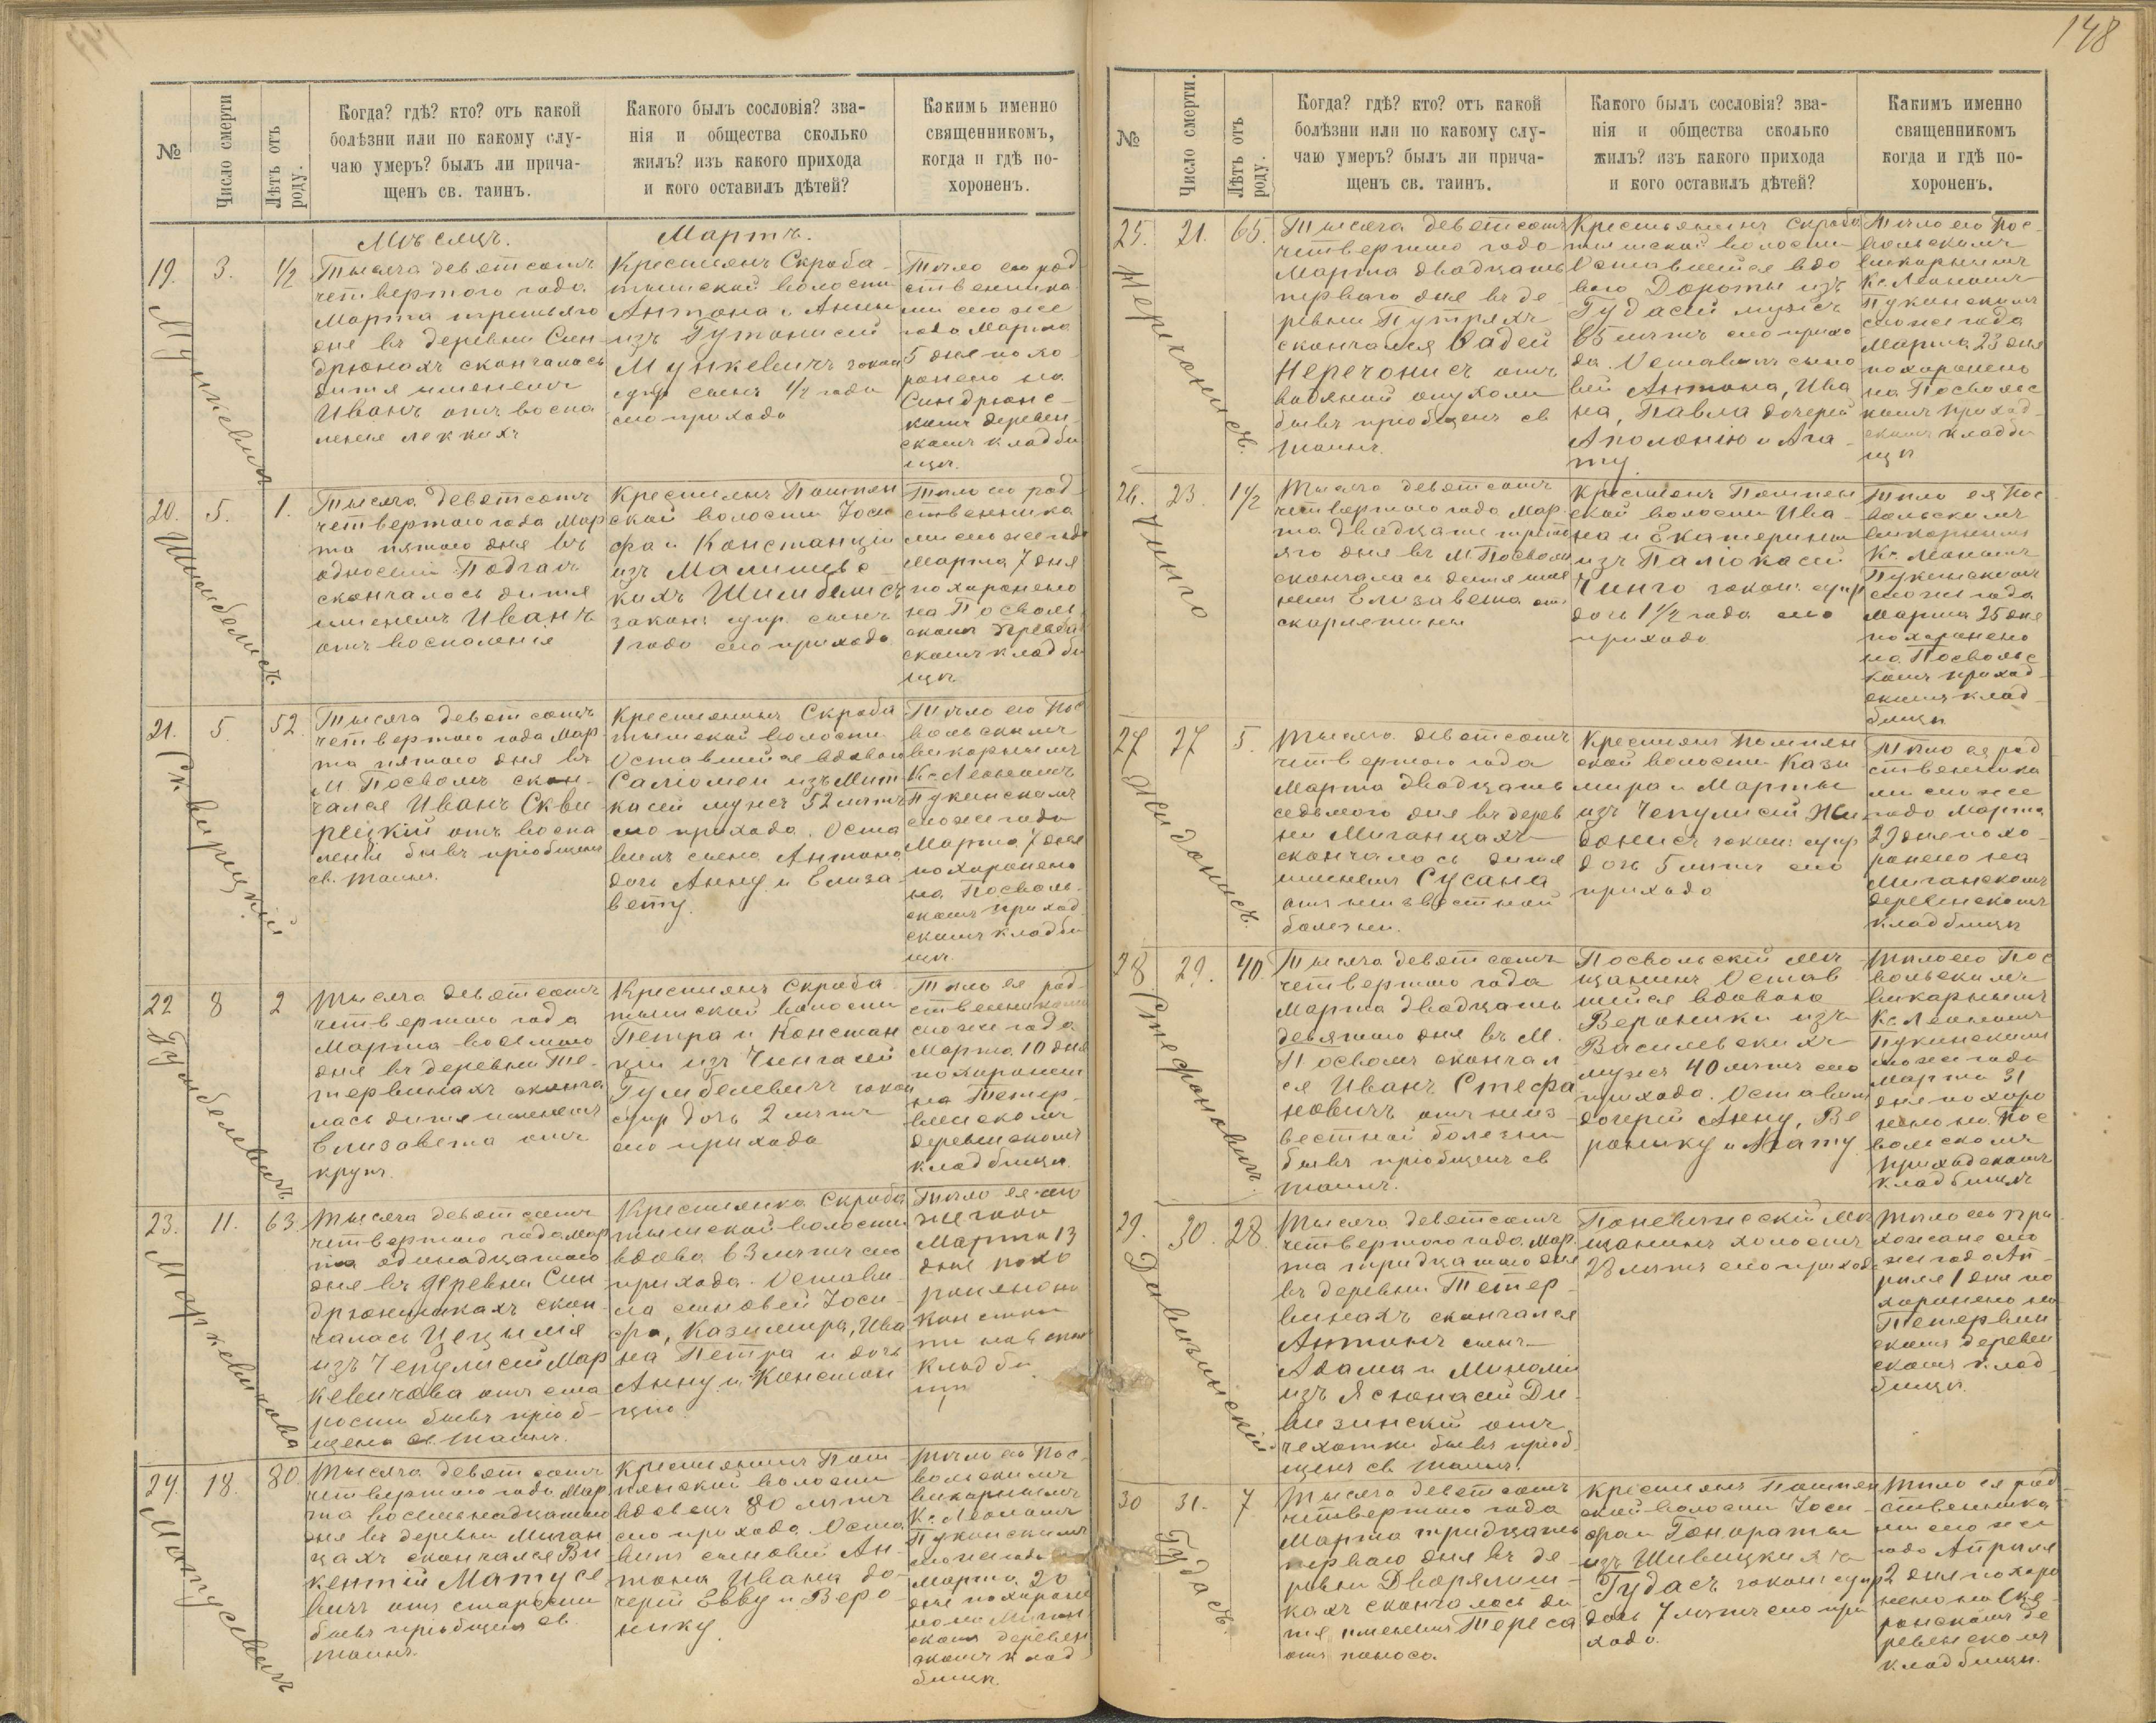 148
№
Число смерти
Лѣтъ отъ роду.
Когда? гдѣ? кто? отъ какой
болѣзни или по какому слу-
чаю умеръ? былъ ли прича-
щенъ св. таинъ.
Какого былъ сословія? зва-
нія и общества сколько
жилъ? изъ какого прихода
и кого оставилъ дѣтей?
Какимъ именно
священникомъ,
когда и гдѣ по-
хороненъ.
Мѣсяцъ.
Мартъ.
19.
3.
1/2
Мункевичъ
Тысяча девятсотъ
четвертого года
Марта третьяго
дня въ деревни Син
дрюнахъ скончалось
дитя именемъ
Иванъ отъ воспа
ленія легкихъ
Крестьянъ Скроба-
тышской волости
Антона и Анны
изъ
Мункевичъ закон
супр сынъ 1/2 года
сго прихода
Тѣло его род
ственника
ми сго же
года Марта
5 дня похо
ронено на
Синдрюнс-
комъ деревен
скомъ кладби
щѣ.
20.
5.
1.
Шимбелисъ.
Тысяча девятсотъ
четвертого года Мар
та пятого дня въ
односеліи Подгай
скончалось дитя
именемъ Иванъ
отъ воспаленія
Крестьянъ Помпян
ской волости Јоси
фа и Констанціи
изъ Малишевс
кихъ Шимбелисъ
закон: супр. сынъ
1 года сго прихода
Тѣло его род
ственника
ми сго же года
Марта 7 дня
похоронено
на Посволь
скомъ
скомъ кладби
щѣ
21.
5.
52.
Сквирецкій
Тысяча девятсотъ
четвертого года Мар
та пятого дня въ
М Посволѣ скон-
чался ИванъСкви
рецкій отъ воспа
ленія бывъ пріобщенъ
св. таинъ.
Крестьянинъ Скроба
тышской волости
Оставшейся вдовою
Саломеи изъ Мит
касей мужъ 52 лѣтъ
сго прихода. Оста
вилъ сына Антона
дочь Анну и Елиза
вету.
Тѣло его Пос
вольскимъ
викарнымъ
Кс. Леономъ
Пукинскимъ
сго же года
Марта 7 дня
похоронено
на Посволь-
скомъ приход
скомъ кладби
щѣ.
22
8
2
Гумбелевичъ
Тысяча девятсотъ
четвертого года
Марта восьмого
дня въ деревни Те-
тервинахъ сконча
лась дитя именемъ
Елизавета отъ
крупъ.
Крестьянъ Скроба
тышской волости
Петра и Констан
ціи изъ Чингасей
Гумбелевичъ закон
супр дочь 2 лѣтъ
сго прихода
Тѣло ея род
ственниками
сго же года
Марта 10 дня
похоронен
на Тетер-
винскомъ
деревенскомъ
кладбищѣ.
23.
11.
63.
Маркевичова
Тысяча девятсотъ
четвертого года Мар
та одинадцатого
дня въ деревни Син
дрюнишкахъ скон-
чалась Цецилія
изъ Чепулисей Мар
кевичова отъ ста
рости бывъ пріоб-
щена св. таинъ.
Крестьянка Скроба
тышской волости
вдова 63 лѣтъ сго
прихода. Остави-
ла сыновей Јоси-
фа, Казимира, Ива
на Петра и дочь
Анну и Констан
цію
Тѣло ея сго
же года
Марта 13
дня похо
ронено на
Констан
ти
кладби
щѣ
24.
18.
80.
Матусевичъ
Тысяча девятсотъ
четвертого года Мар
та восемьнадцатого
дня въ деревни Миган
цахъ скончался Ви
кентій Матусе
вичъ отъ старости
бывъ пріобщенъ св.
таинъ.
Крестьянинъ Пом-
пянской волости
вдовецъ 80 лѣтъ
сго прихода. Оста
вилъ сыновей Ан-
тона Ивана до-
черей Евву и Веро-
нику.
Тѣло его Пос-
вольскимъ
викарнымъ
Кс. Леономъ
Пукинскимъ
сго же года
Марта 20
дня похороне
но на Миган
скомъ деревен
скомъ клад
бищѣ.
№
Число смерти.
Лѣтъ отъ роду.
Когда? гдѣ? кто? отъ какой
болѣзни или по какому слу-
чаю умеръ? былъ ли прича-
щенъ св. таинъ.
Какого былъ сословія? зва-
нія и общества сколько
жилъ? изъ какого прихода
и кого оставилъ дѣтей?
Какимъ именно
священникомъ
когда и гдѣ по-
хороненъ.
25.
21.
65.
Тысяча девятсотъ
четвертого года
Марта двадцать
первого дня въ де-
ревни Путряхъ
скончался Фадей
Нерчонисъ отъ
водяной опухоли
бывъ пріобщенъ св
таинъ.
Крестьянинъ Скроба
тышской волости
Оставшейся вдо
вою Дороты изъ
Гудасей мужъ
65 лѣтъ сго прихо
да. Оставилъ сыно
вей Антона, Ива
на, Павла дочерей
Аполонію и Ага-
ту.
Тѣло его Пос-
вольскимъ
викарнымъ
Кс. Леономъ
Пукинскимъ
сго же года
Марта 23 дня
похоронено
на Посвольс
комъ приход-
скомъ кладби
щѣ
26.
23
1 1/2
Чинго
Тысяча девятсотъ
четвертого года Мар
та двадцать треть
яго дня въ М. Посволѣ
скончалась дитя име
нем Елизавета отъ
скарлатины
Крестьянъ Помпян
ской волости Ива-
на и Екатерины
изъ Паліокасей
Чинго закон: супр
дочь 1 1/2 года сго
прихода
Тѣло ея Пос
вольскимъ
викарнымъ
Кс. Леономъ
Пукинскимъ
сго же года
Марта 25 дня
похоронено
на Посвольс
комъ приход
скомъ клад
бищѣ
27
27
5.
Тысяча девятсотъ
четвертого года
Марта двадцать
седьмого дня въ дерев
ни Миганцахъ
скончалась дитя
именемъ Сусана
отъ неизвестной
болезни.
Крестьянъ Помпян
ской волости Кази
мира и Марты
изъ Чепулисей Жи
донисъ закон: супр
дочь 5 лѣтъ сго
прихода
Тѣло ея род
ственника
ми сго же
года Марта
29 дня похо-
ронено на
Миганскомъ
деревенскомъ
кладбищѣ
28
29.
40.
Стефановичъ.
Тысяча девятсотъ
четвертого года
Марта двадцать
девятого дня въ М.
Посволѣ скончал
ся Иванъ Стефа
новичъ отъ неиз
вестной болезни
бывъ пріобщенъ св
таинъ.
Посвольскій мѣ-
щанинъ Остав
шейся вдовою
Вероники изъ
Василевскихъ
мужъ 40 лѣтъ сго
прихода. Оставилъ
дочерей Анну, Ве
ронику и Агату
Тѣло его Пос
вольскимъ
викарнымъ
Кс. Леономъ
Пукинскимъ
сго же года
Марта 31
дня похоро
нено на Пос
вольскомъ
приходскомъ
кладбищѣ
29.
30.
28.
Тысяча девятсотъ
четвертого года Мар.
та тридцатого дня
въ деревни Тетер-
винахъ скончался
Антонъ сынъ
Адама и
изъ Ясюнасей Ди-
визинскій отъ
чехотки бывъ пріоб
щенъ св. таинъ.
Поневежскій мѣ
щанинъ холостъ
28 лѣтъ сго приход
Тѣло его при
хожане сго
же года Ап-
реля 1 дня по
хоронено на
Тетервин
скомъ деревен
скомъ клад
бищѣ.
30
31.
7
Гудасъ.
Тысяча девятсотъ
четвертого года
Марта тридцать
первого дня въ де
ревни Дворялиш-
кахъ скончалось ди
тя именемъ Тереса
отъ поноса.
Крестьянъ Помпян
ской волости Јоси-
фа и Гонораты
изъ Шивицкихъ
Гудасъ закон: супр
дочь 7 лѣтъ сго при
хода.
Тѣло ея род
ственника
ми сго же
года Апреля
2 дня похоро
нено на
ронскомъ де
ревенскомъ
кладбищѣ.